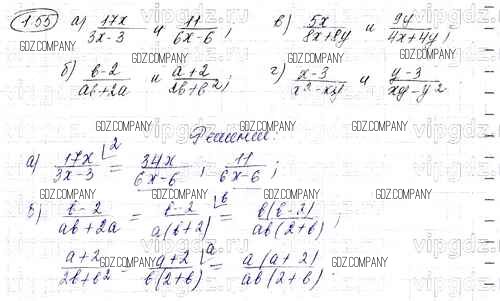 1.55 а) 17x/(3x-3) и 11/(6x-6); в) 5x/(8x+8y) и 9y/(4x+4y);
GDZ.COMPANY
б) (b-2)/(ab+2a) и (a+2)/(2b+b²); г) (x-3)/(x²-xy) и (y-3)/(xy-y²).
GDZ.COMPANY GDZ.COMPANY GDZ.COMPANY
vipgdz
Решение:
а) 17x/(3x-3) \2 = 34x/(6x-6); 11/(6x-6);
б) (b-2)/(ab+2a) = (b-2)/(a(b+2)) \b = b(b-2)/(ab(2+b));
(a+2)/(2b+b²) = (a+2)/(b(2+b)) \a = a(a+2)/(ab(2+b)).